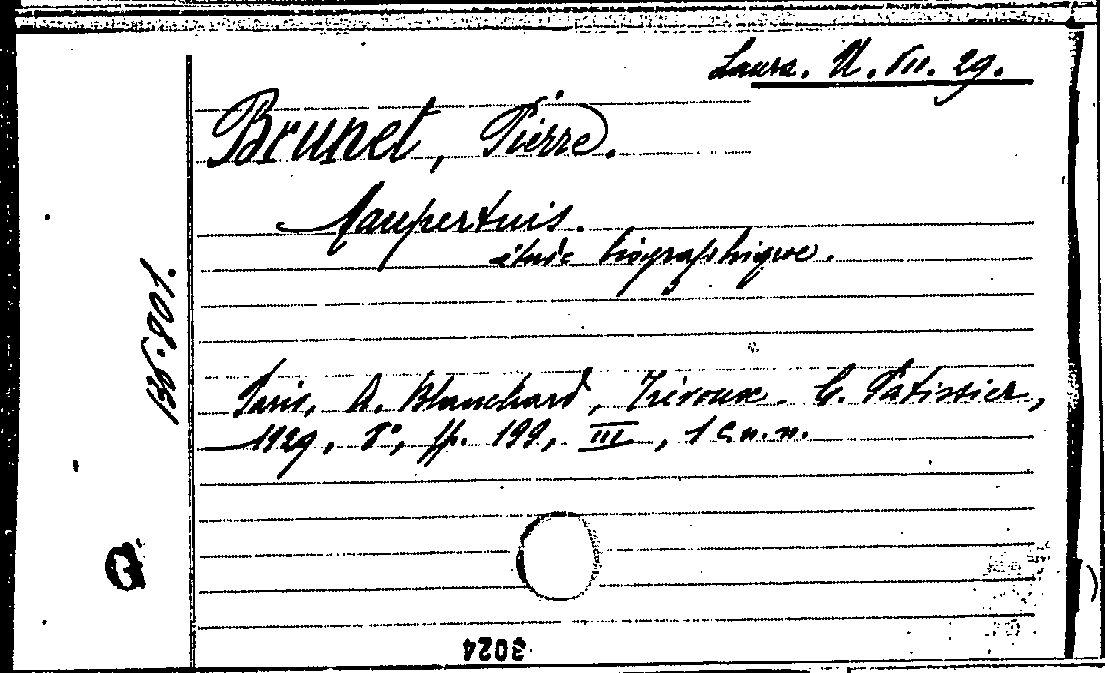 Laura. U. VII. 29.
Brunet, Pierre.
Maupertuis.
étude biographique.
Paris, A. Blanchard, Trévoux. G. Patissier,
1929, 8°, pp. 199, III, 1 c. n. n.
3024